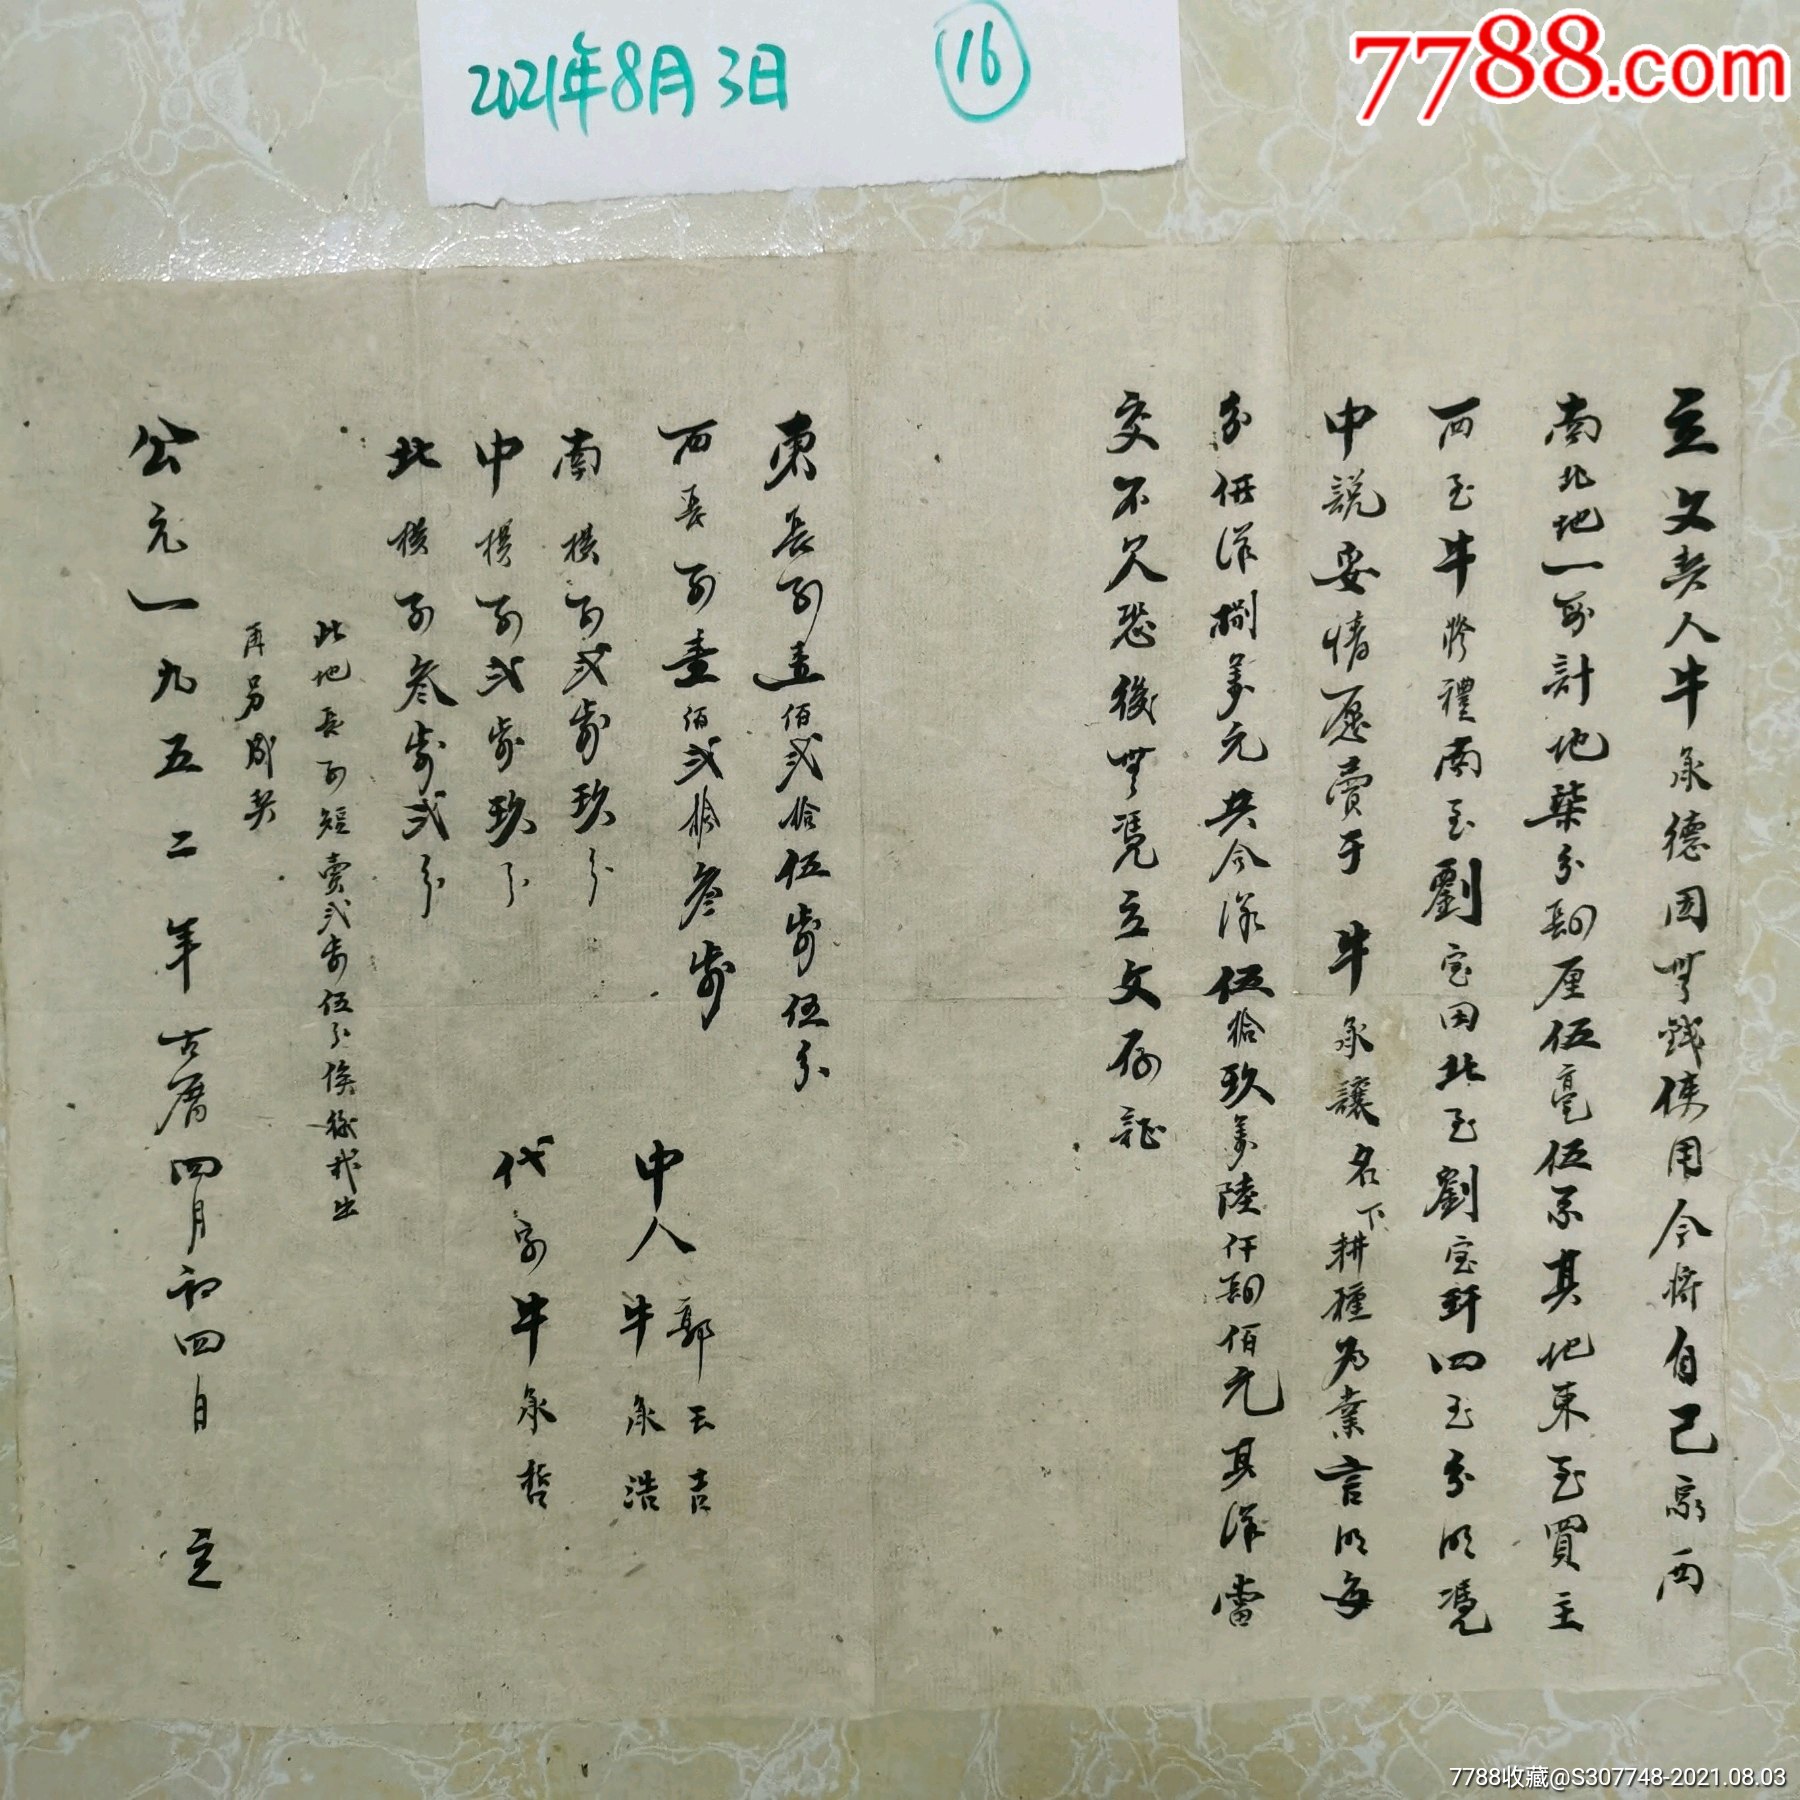 2021年8月3日 16
7788.com
立文契人牛承德因無錢使用今將自己家西
南北地一段計地柒分捌厘伍毫伍系其地東至買主
西至牛修禮南至劉宝田北至劉宝軒四至分明憑
中説妥情愿賣于牛承讓名下耕種為業言明每
分任洋捌萬元共合洋伍拾玖萬陸仟捌佰元其洋當
交不欠恐後無憑立文存証
東長可壹佰弍拾伍步伍分
西長可壹佰弍拾叁步
南横可弍步玖分
中横可弍步玖分
北横可叁步弍分
中人 郭玉吉
牛承浩
代字牛承哲
此地長可短賣弍步伍分俟後我出
再另成契
公元一九五二年古曆四月初四日 立
7788收藏@S307748-2021.08.03